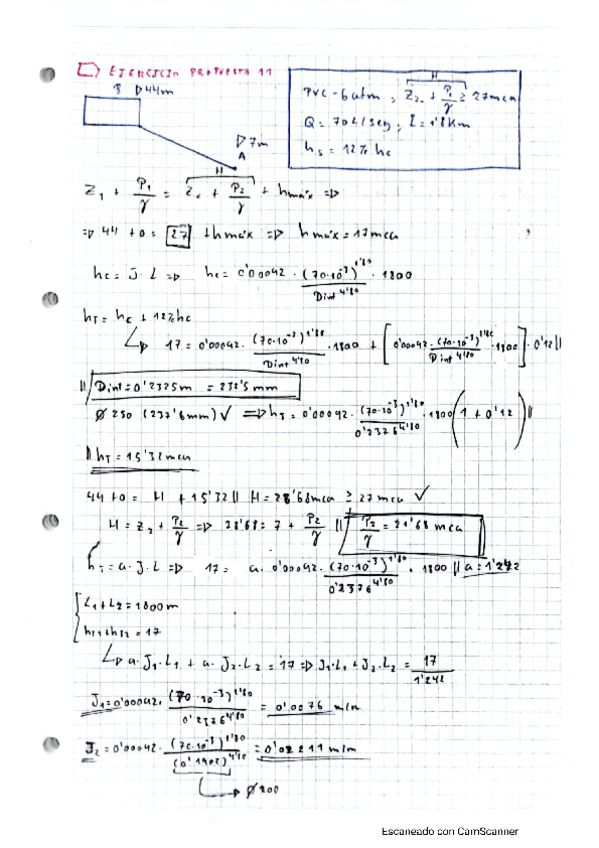 EJERCICIO PROPUESTO 11
B ▷44m
▷7m
A
H
PVC-6atm ; Z₂ + P₂/γ ≥ 27mca
H
Q = 70 L/seg ; L = 1'8 Km
hs = 12% hc
Z₁ + P₁/γ = Z₂ + P₂/γ + hmáx ⇒
H
⇒ 44 + 0 = 27 + hmáx ⇒ hmáx = 17mca
hc = J · L ⇒ hc = 0'00092 · (70·10⁻³)^1'80 / Dint^4'80 · 1800
hT = hc + 12% hc
↳ 17 = 0'00092 · (70·10⁻³)^1'80 / Dint^4'80 · 1800 + [0'00092 · (70·10⁻³)^1'80 / Dint^4'80 · 1800] · 0'12 ||
|| Dint = 0'2325m = 232'5 mm
Ø 250 (237'6mm) ✓ ⇒ hT = 0'00092 · (70·10⁻³)^1'80 / 0'2376^4'80 · 1800 (1 + 0'12) ||
|| hT = 15'32 mca
44 + 0 = H + 15'32 || H = 28'68mca ≥ 27 mca ✓
H = Z₂ + P₂/γ ⇒ 28'68 = 7 + P₂/γ || P₂/γ = 21'68 mca
hT = a · J · L ⇒ 17 = a · 0'00092 · (70·10⁻³)^1'80 / 0'2376^4'80 · 1800 || a = 1'242
L₁ + L₂ = 1800 m
hT₁ + hT₂ = 17
↳ a · J₁ · L₁ + a · J₂ · L₂ = 17 ⇒ J₁ · L₁ + J₂ · L₂ = 17 / 1'242
J₁ = 0'00092 · (70·10⁻³)^1'80 / 0'2376^4'80 = 0'0076 m/m
J₂ = 0'00092 · (70·10⁻³)^1'80 / (0'1902)^4'80 = 0'02211 m/m
↳ Ø 200
Escaneado con CamScanner